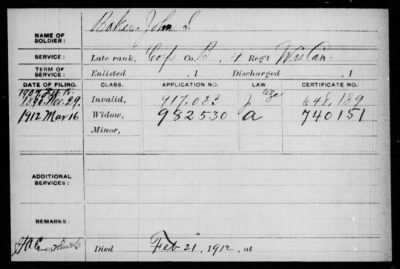 NAME OF SOLDIER: Baker, John S.
SERVICE: Late rank, Corp Co. B, 4 Reg't Wis Cav.
TERM OF SERVICE: Enlisted , 1 Discharged , 1
DATE OF FILING. CLASS. APPLICATION NO. CERTIFICATE NO.
1907
Nov. 29. Invalid, 917.023 648.189
1912 Mar 16 Widow, 982530 a 740151
Minor,
ADDITIONAL SERVICES:
REMARKS:
Died Feb 21, 1912, at